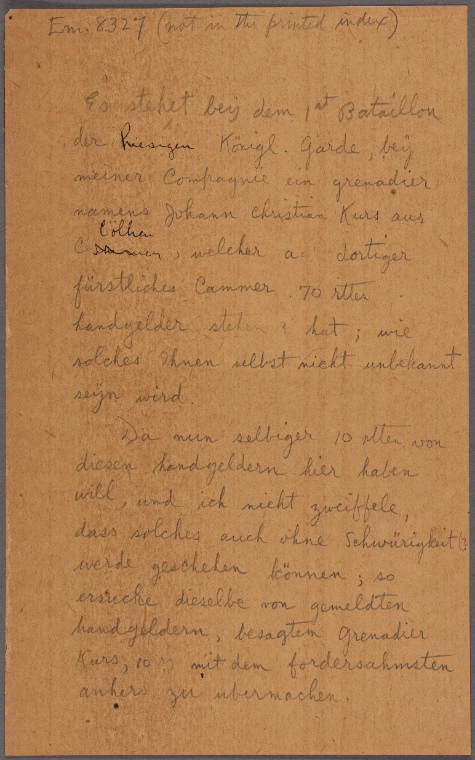 Em. 8327 (not in the printed index)
Es stehet beÿ dem 1st Bataillon
der hiesigen Königl. Garde, beÿ
meiner Compagnie ein grenadier
namens Johann Christian Kurs aus
Cöthen
, welcher a dortiger
fürstliches Cammer 70 rtler
handgelder stehen hat; wie
solches Ihnen selbst nicht unbekannt
seÿn wird.
Da nun selbiger 10 rtlen von
diesen handgeldern hier haben
will, und ich nicht zweiffele,
dass solches auch ohne Schwürigkeit
werde geschehen können; so
ersuche dieselbe von gemeldten
handgeldern, besagtem grenadier
Kurs, 10 mit dem fordersahmsten
anhero zu ubermachen.